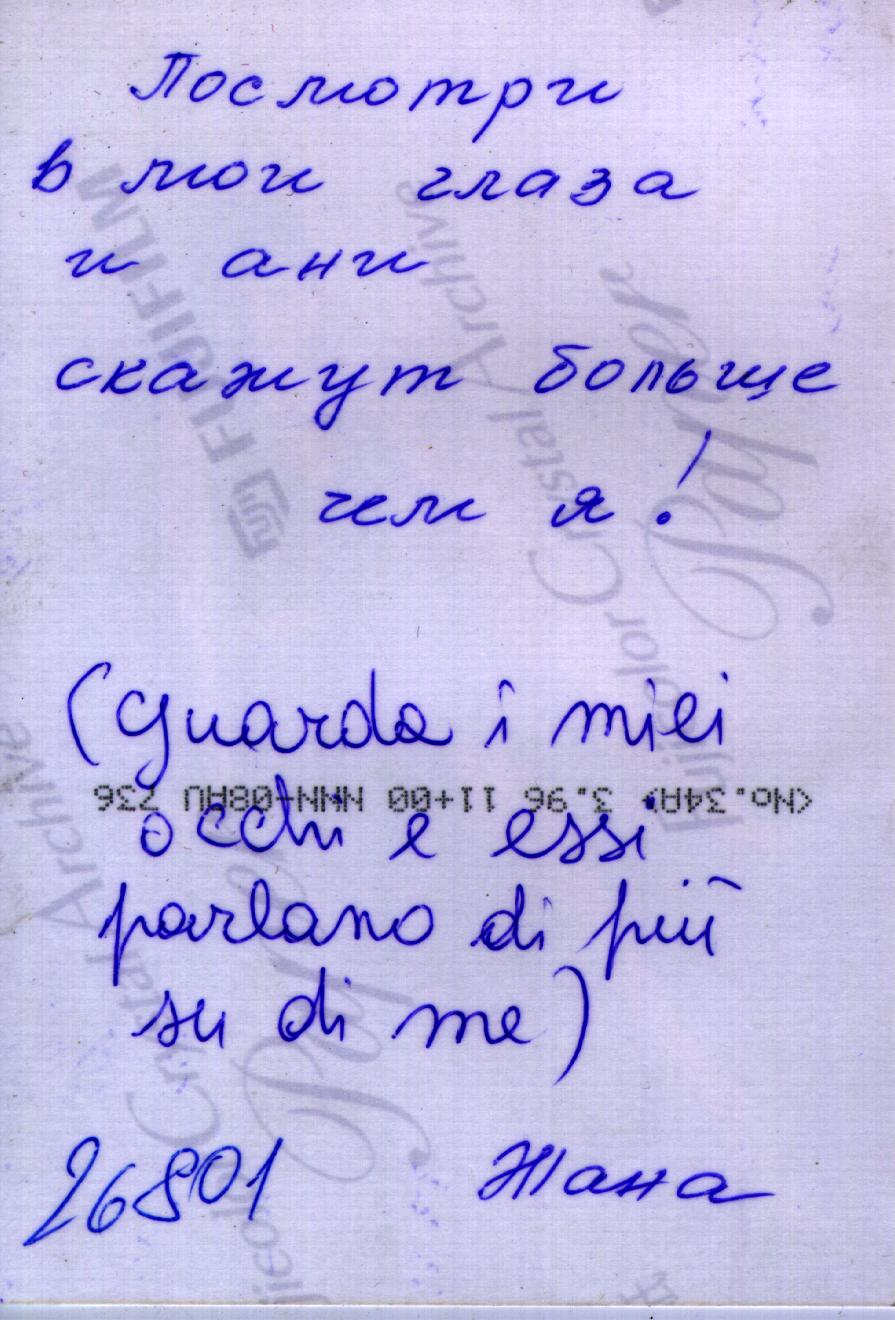 Посмотри
в мои глаза
и ани
скажут больще
чем я!
(Guarda i miei
<No.34A> 3.96 11+00 NNN+08AU 736
occhi e essi
parlano di più
su di me)
26801 Жана
FUJIFILM
Fujicolor Crystal Archive
Paper
Crystal Archive
Paper